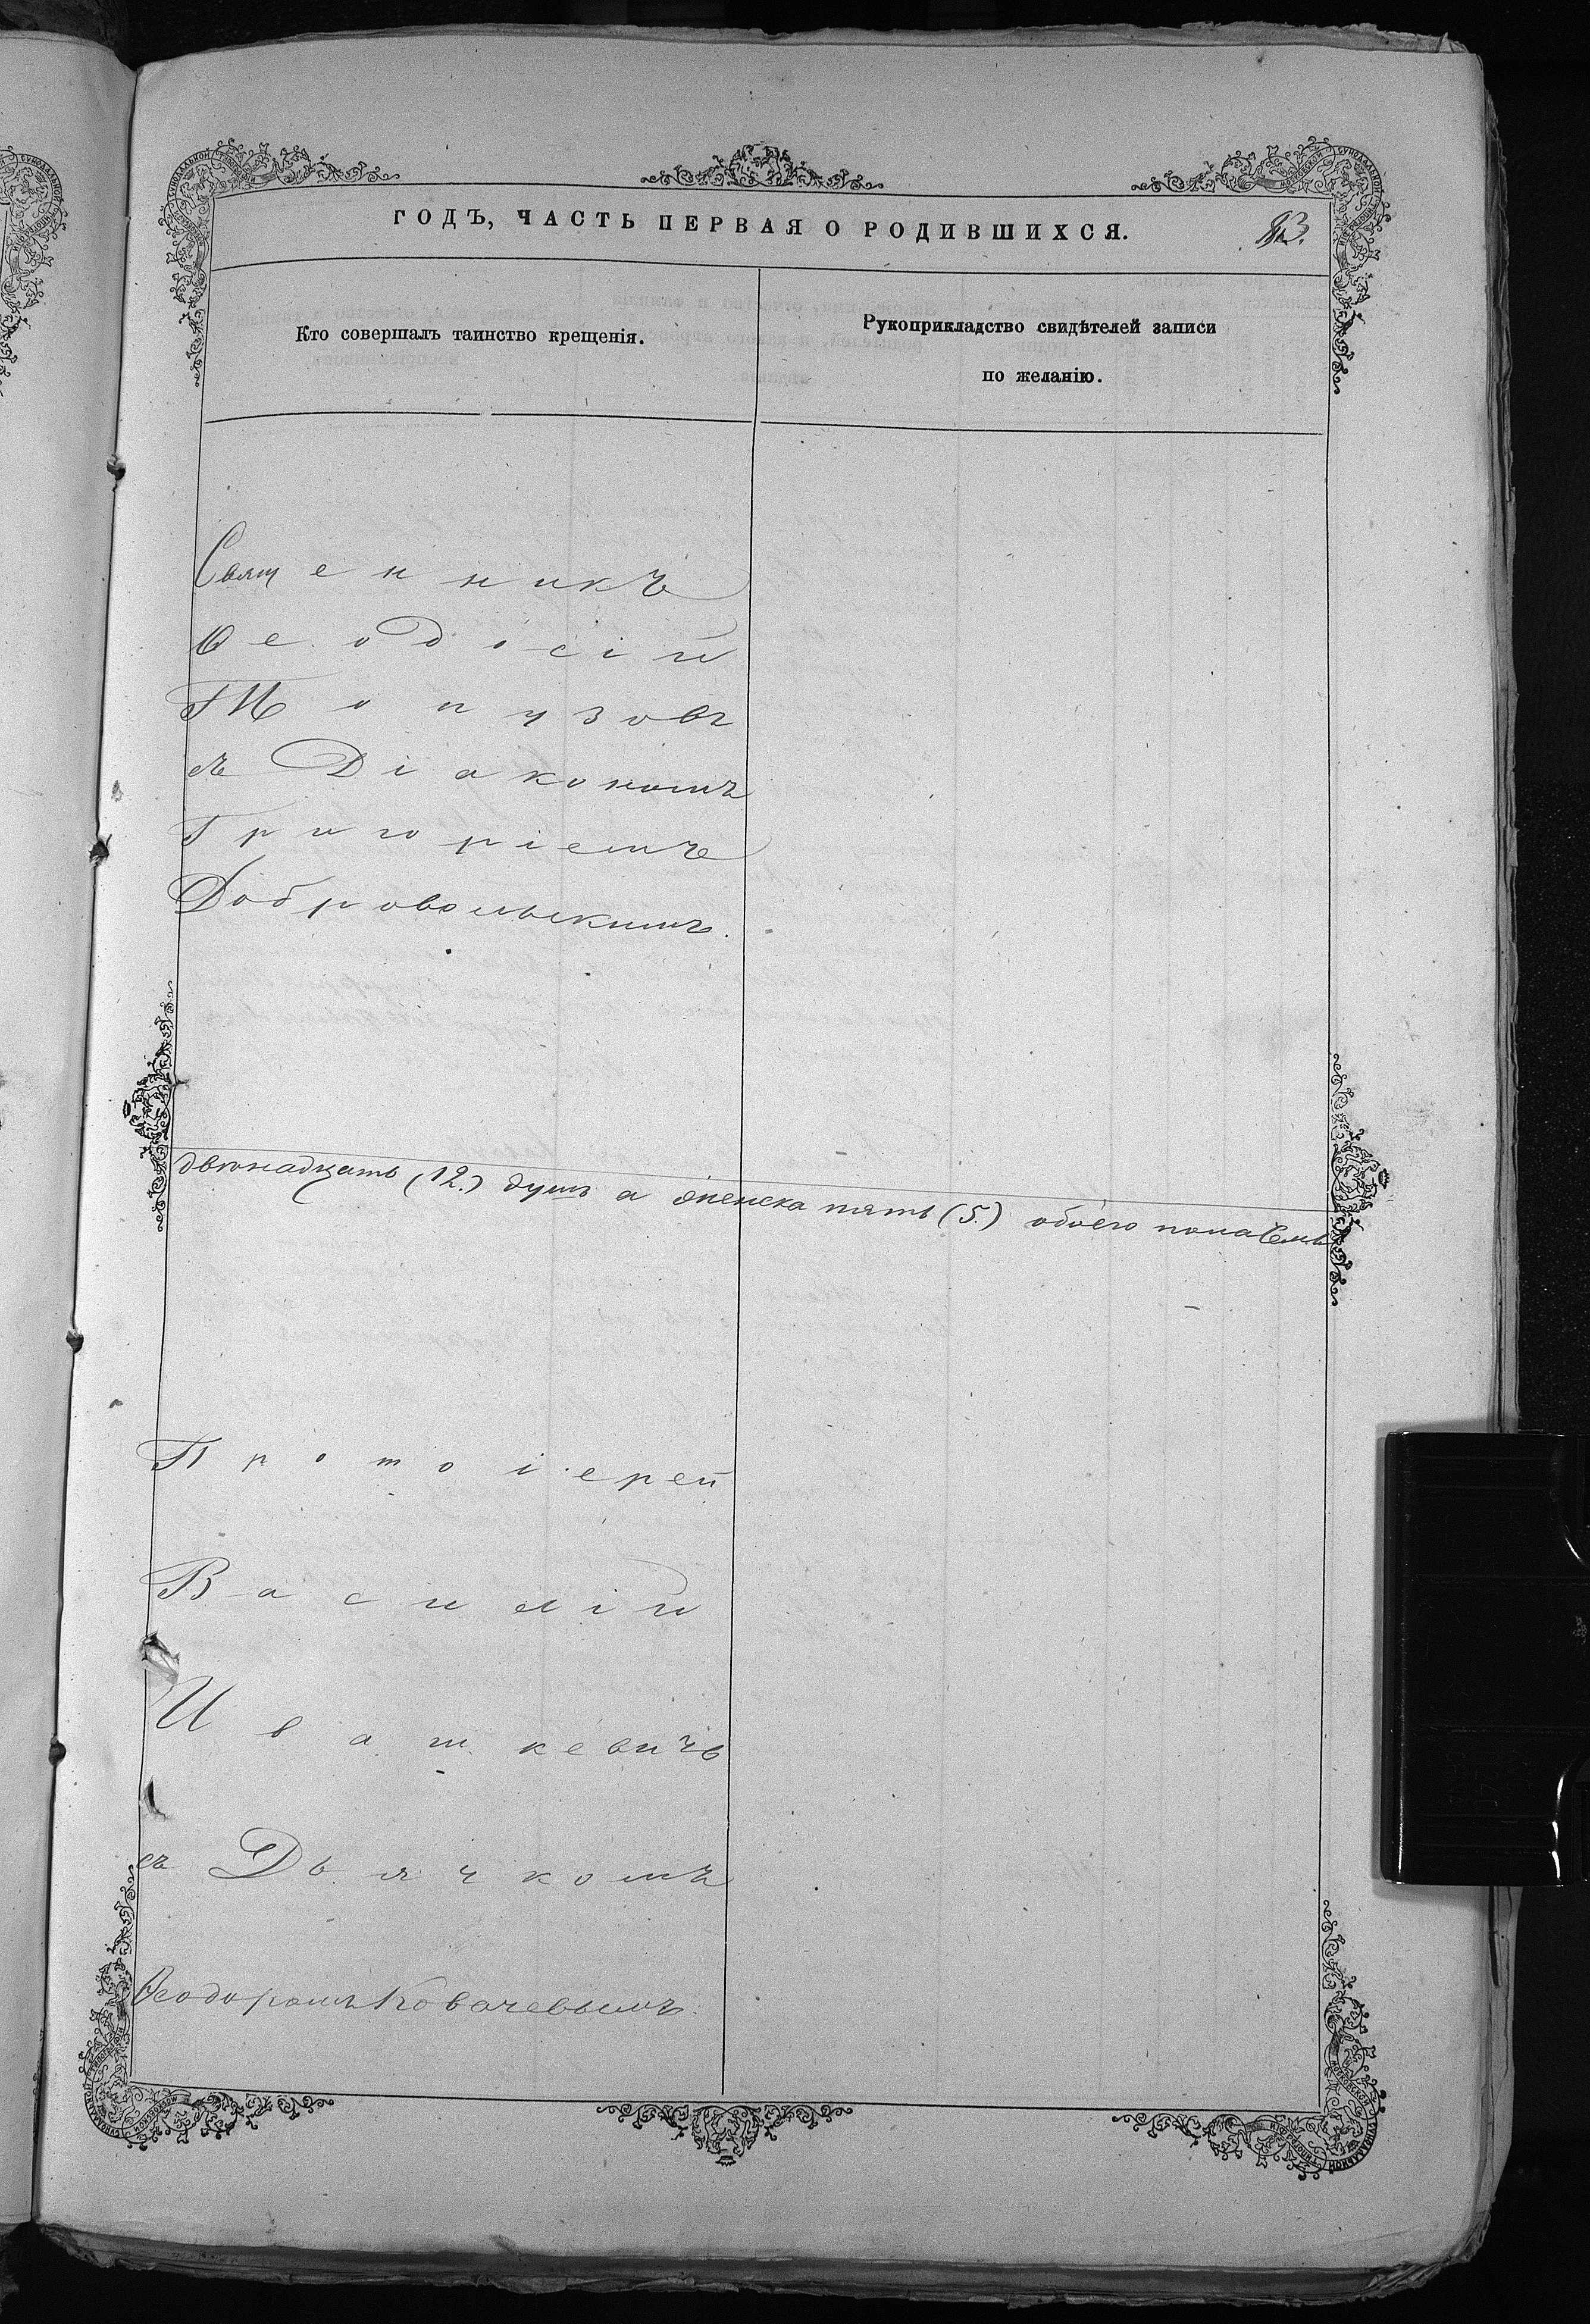 ГОДЪ, ЧАСТЬ ПЕРВАЯ О РОДИВШИХСЯ.
Кто совершалъ таинство крещенія.
Рукоприкладство свидѣтелей записи
по желанію.
Священникъ
Ѳеодосій
Топузовъ
съ Діакономъ
Григоріемъ
Добровольскимъ.
двѣнадцать (12.) душъ а женска пять (5.) обоего пола
Протоіерей
Василій
Ивашкевичъ
съ Дьячкомъ
Ѳеодоромъ Ковачевымъ.